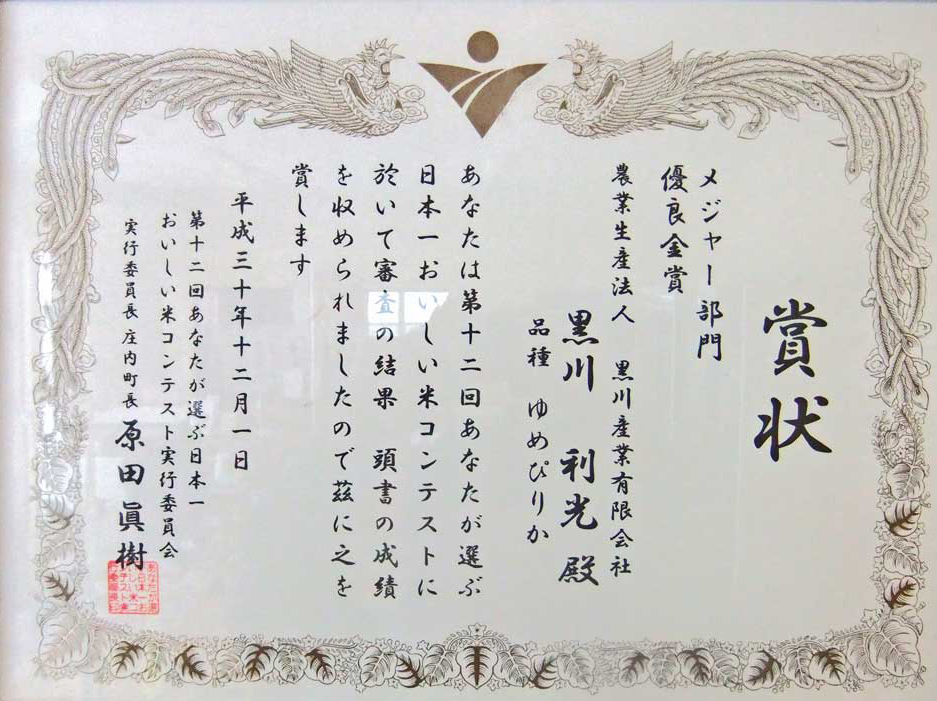 賞状
メジャー部門
優良金賞
農業生産法人 黒川産業有限会社
黒川 利光 殿
品種 ゆめぴりか
あなたは第十二回あなたが選ぶ
日本一おいしい米コンテストに
於いて審査の結果 頭書の成績
を収められましたので茲に之を
賞します
平成三十年十二月一日
第十二回あなたが選ぶ日本一
おいしい米コンテスト実行委員会
実行委員長 庄内町長 原田眞樹